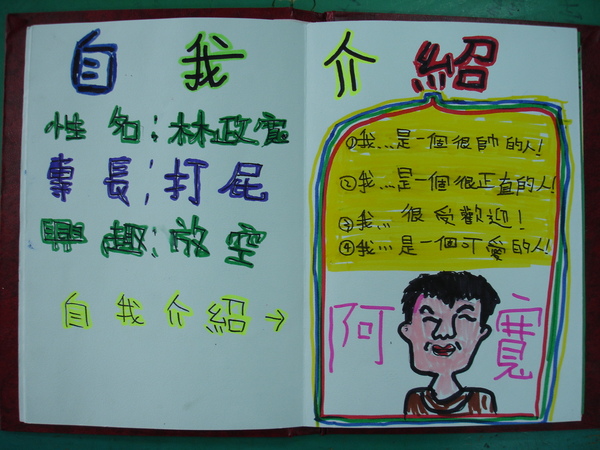 自我介紹
性名:林政寬
專長:打屁
興趣:放空
自我介紹→
①我...是一個很帥的人!
②我...是一個很正直的人!
③我...很受歡迎!
④我...是一個可愛的人!
阿寬